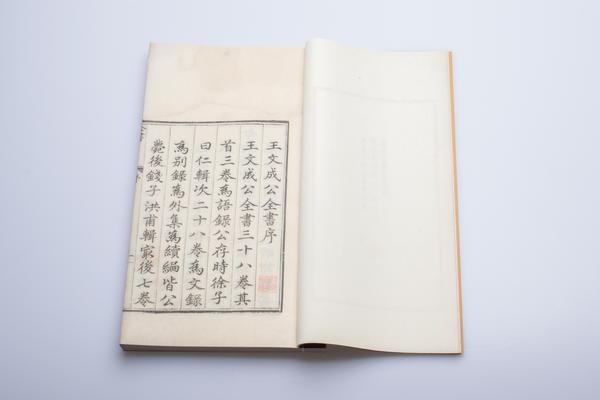 王文成公全書序
王文成公全書三十八卷其
首三卷爲語錄公存時徐子
曰仁輯次二十八卷爲文錄
爲别錄爲外集爲續編皆公
薨後錢子洪甫輯㝡後七卷